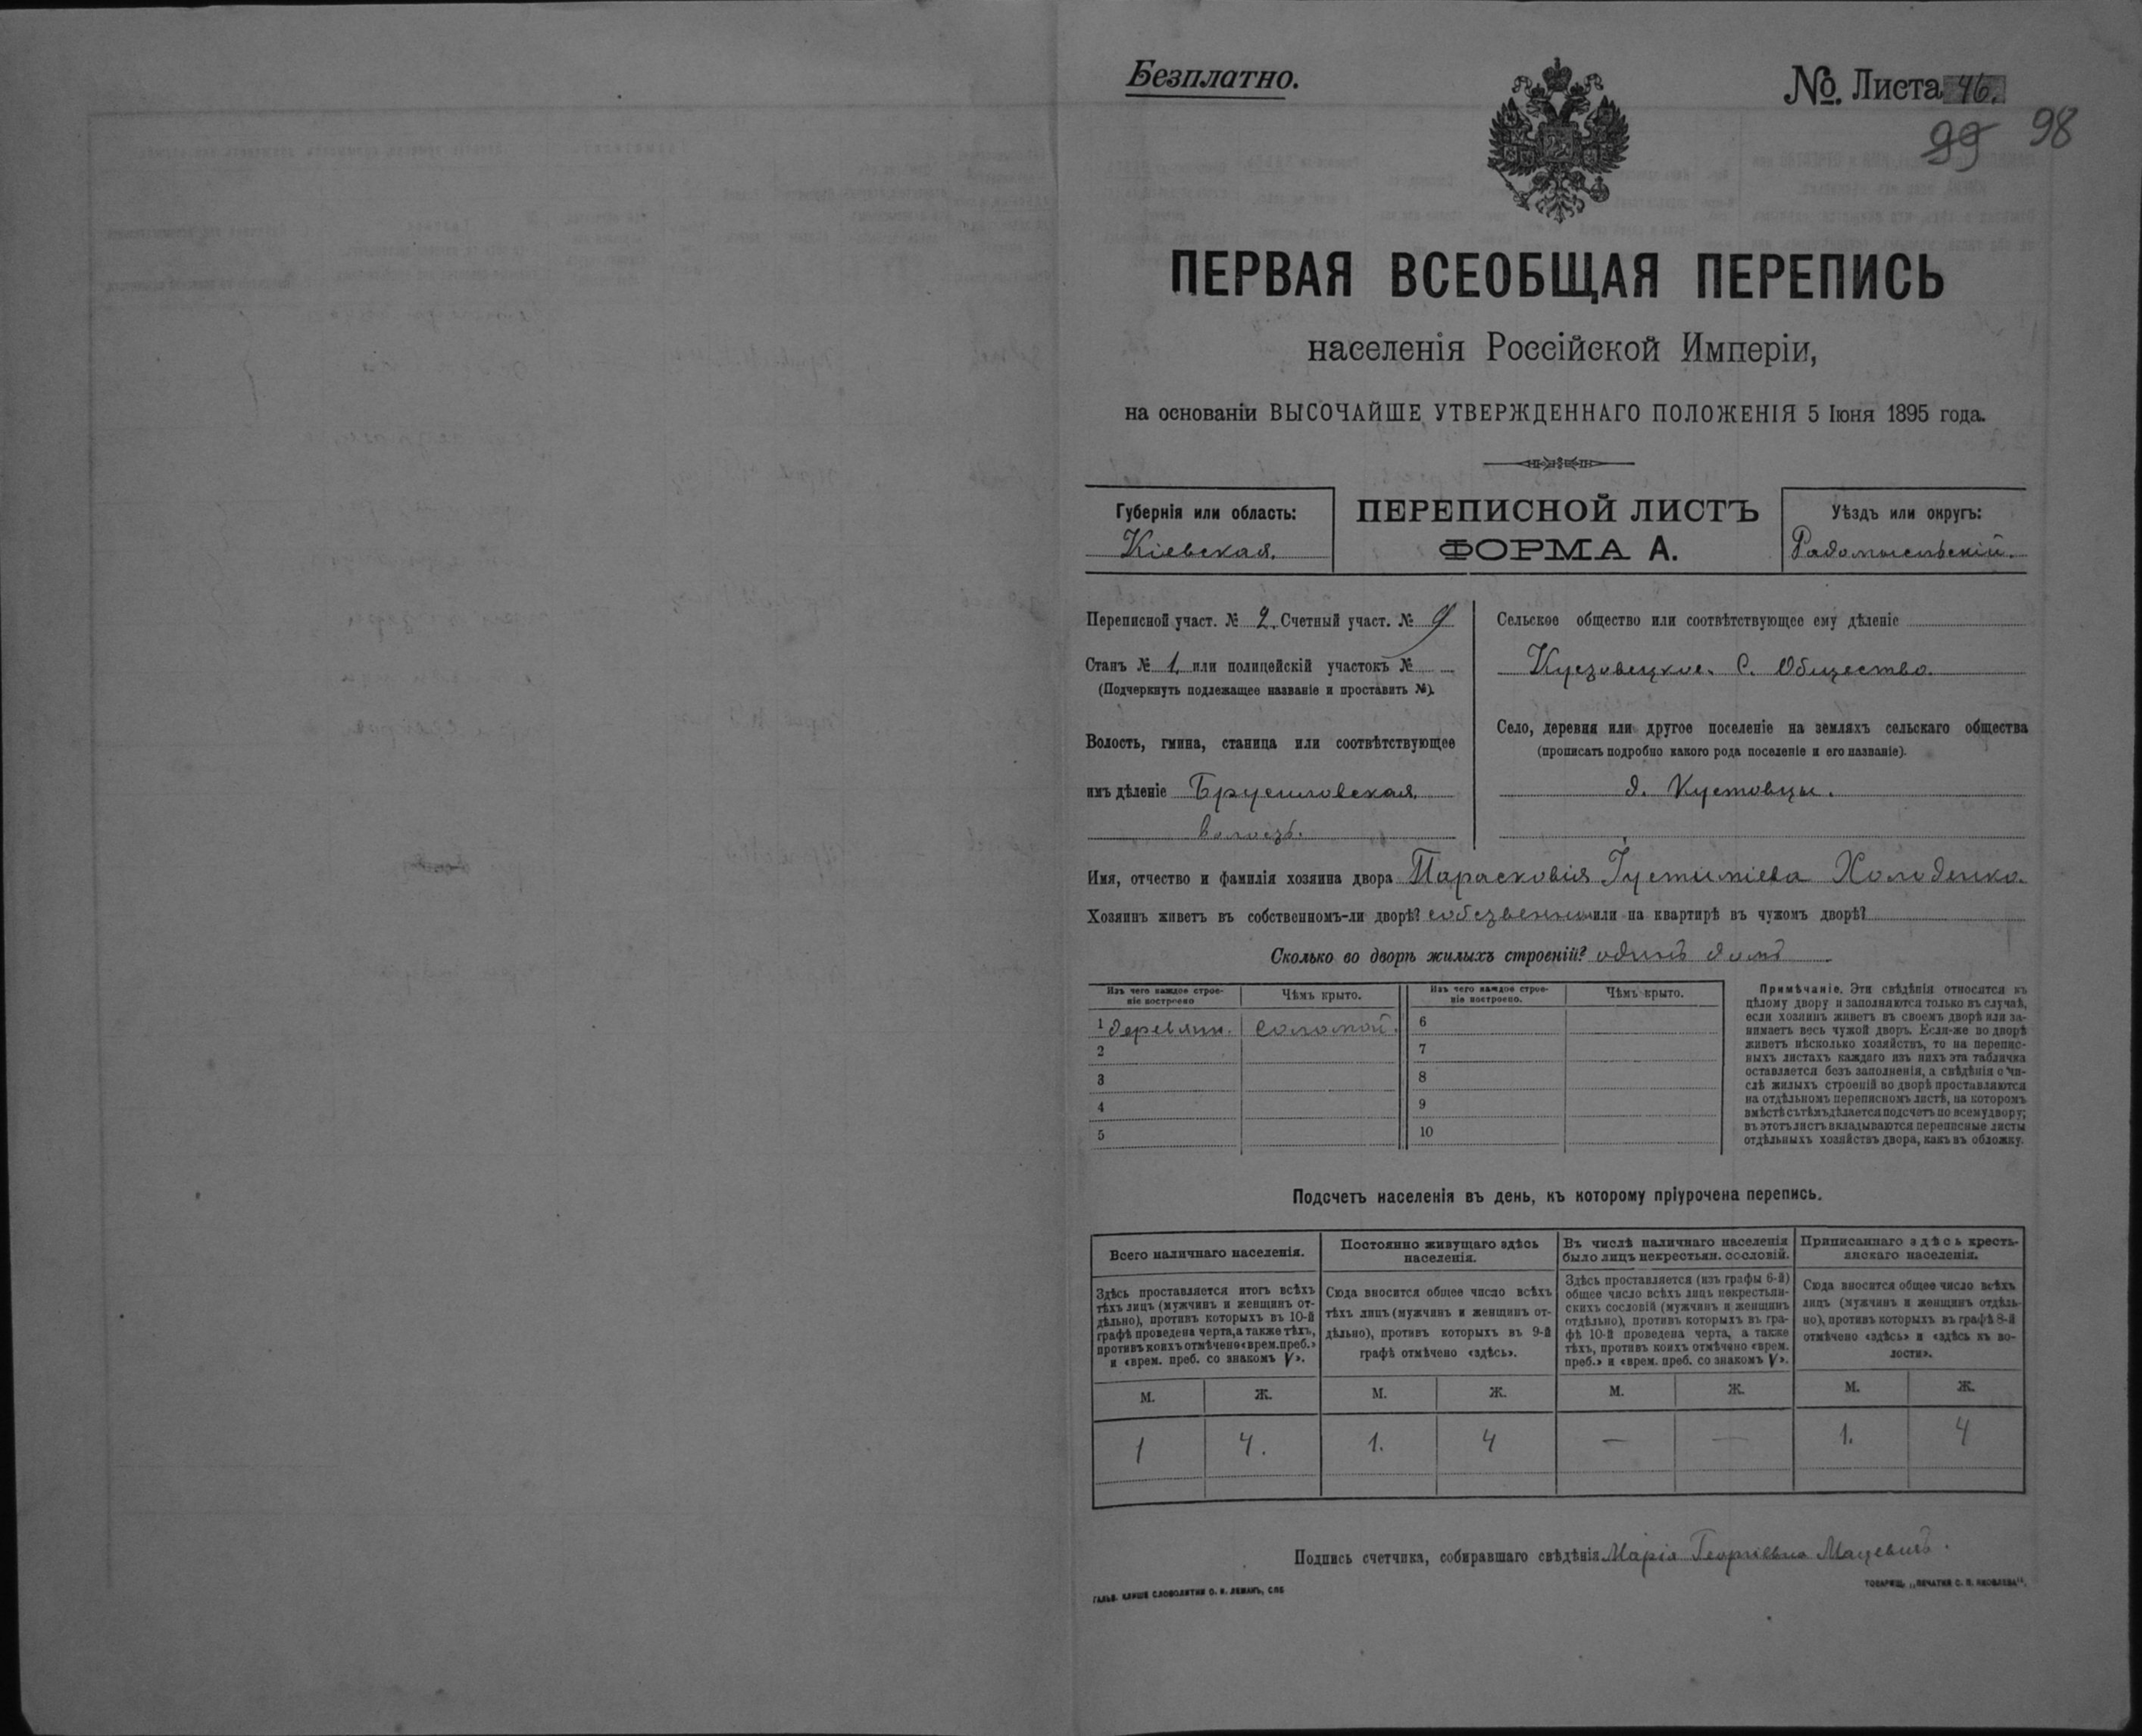 Безплатно.
№ Листа 46.
99 98
ПЕРВАЯ ВСЕОБЩАЯ ПЕРЕПИСЬ
населенія Россійской Имперіи,
на основаніи ВЫСОЧАЙШЕ УТВЕРЖДЕННАГО ПОЛОЖЕНІЯ 5 Іюня 1895 года.
Губернія или область:
Кіевская.
ПЕРЕПИСНОЙ ЛИСТЪ
ФОРМА А.
Уѣздъ или округъ:
Радомысльскій.
Переписной участ. № 2. Счетный участ. № 9
Станъ № 1, или полицейскій участокъ №
(Подчеркнуть подлежащее названіе и проставить №).
Волость, гмина, станица или соотвѣтствующее
имъ дѣленіе Брусиловская
волость.
Сельское общество или соотвѣтствующее ему дѣленіе
С. Общество.
Село, деревня или другое поселеніе на земляхъ сельскаго общества
(прописать подробно какого рода поселеніе и его названіе).
д. Кустовцы.
Имя, отчество и фамилія хозяина двора Парасковія Іустиміева Холоденко.
Хозяинъ живетъ въ собственномъ-ли дворѣ? или на квартирѣ въ чужомъ дворѣ?
Сколько во дворѣ жилыхъ строеній? одинъ домъ
Изъ чего каждое строеніе построено
Чѣмъ крыто.
Изъ чего каждое строеніе построено.
Чѣмъ крыто.
1 деревян. соломой. 6
2 7
3 8
4 9
5 10
Примѣчаніе. Эти свѣдѣнія относятся къ
цѣлому двору и заполняются только въ случаѣ,
если хозяинъ живетъ въ своемъ дворѣ или за-
нимаетъ весь чужой дворъ. Если-же во дворѣ
живетъ нѣсколько хозяйствъ, то на перепис-
ныхъ листахъ каждаго изъ нихъ эта табличка
оставляется безъ заполненія, а свѣдѣнія о чи-
слѣ жилыхъ строеній во дворѣ проставляются
на отдѣльномъ переписномъ листѣ, на которомъ
вмѣстѣ съ тѣмъ дѣлается подсчетъ по всему двору;
въ этотъ листъ вкладываются переписные листы
отдѣльныхъ хозяйствъ двора, какъ въ обложку.
Подсчетъ населенія въ день, къ которому пріурочена перепись.
Всего наличнаго населенія.
Здѣсь проставляется итогъ всѣхъ
тѣхъ лицъ (мужчинъ и женщинъ от-
дѣльно), противъ которыхъ въ 10-й
графѣ проведена черта, а также тѣхъ,
противъ коихъ отмѣчено «врем. преб.»
и «врем. преб. со знакомъ V».
Постоянно живущаго здѣсь
населенія.
Сюда вносится общее число всѣхъ
тѣхъ лицъ (мужчинъ и женщинъ от-
дѣльно), противъ которыхъ въ 9-й
графѣ отмѣчено «здѣсь».
Въ числѣ наличнаго населенія
было лицъ некрестьян. сословій.
Здѣсь проставляется (изъ графы 6-й)
общее число всѣхъ лицъ некрестьян-
скихъ сословій (мужчинъ и женщинъ
отдѣльно), противъ которыхъ въ гра-
фѣ 10-й проведена черта, а также
тѣхъ, противъ коихъ отмѣчено «врем.
преб.» и «врем. преб. со знакомъ V».
Приписаннаго здѣсь кресть-
янскаго населенія.
Сюда вносится общее число всѣхъ
лицъ (мужчинъ и женщинъ отдѣль-
но), противъ которыхъ въ графѣ 8-й
отмѣчено «здѣсь» и «здѣсь къ во-
лости».
М. Ж. М. Ж. М. Ж. М. Ж.
1 4. 1. 4 — — 1. 4
Подпись счетчика, собиравшаго свѣдѣнія Марія Георгіевна Мацевичъ.
ГАЛЬВ. КЛИШЕ СЛОВОЛИТНИ О. И. ЛЕМАНЪ, СПБ
ТОВАРИЩ. „ПЕЧАТНЯ С. П. ЯКОВЛЕВА".